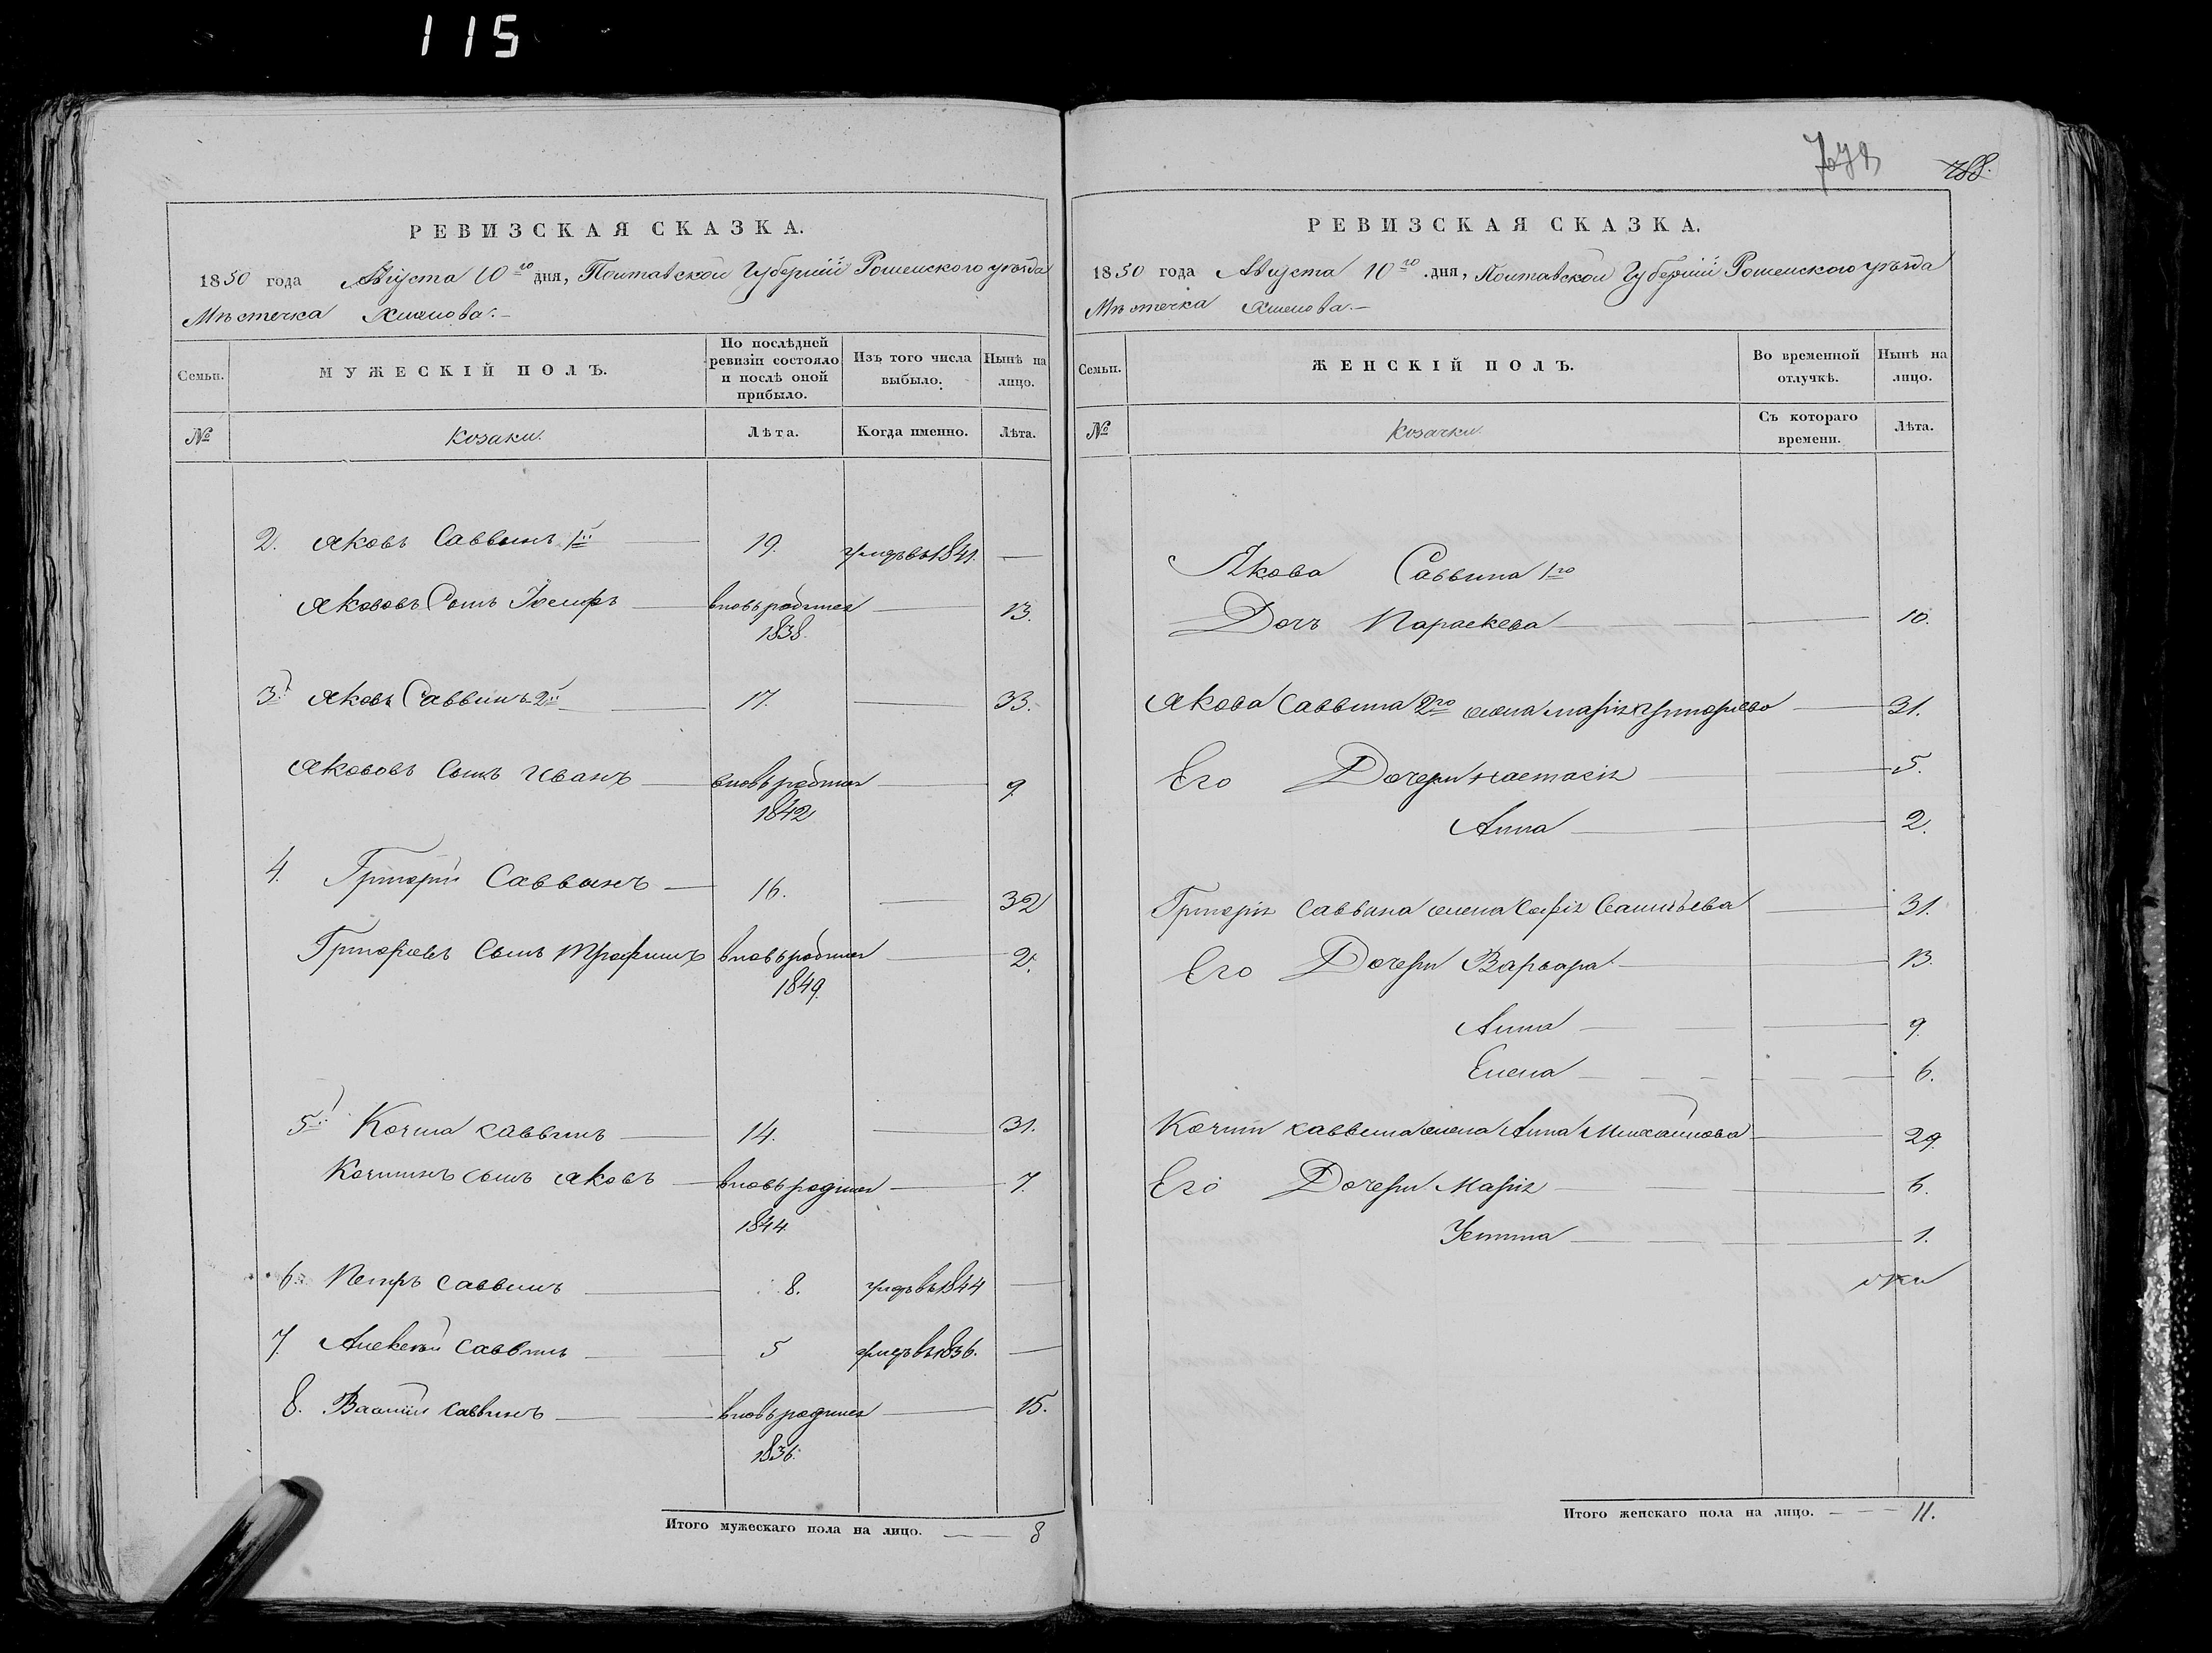 115
788.
РЕВИЗСКАЯ СКАЗКА.
1850 года Августа 10го дня, Полтавской Губерніи Роменского уѣзда
Мѣстечка
Семьи.
МУЖЕСКІЙ ПОЛЪ.
По послѣдней ревизіи состояло и послѣ оной прибыло.
Изъ того числа выбыло.
Нынѣ на лицо.
№
Козаки.
Лѣта.
Когда именно.
Лѣта.
2. Яковъ Саввинъ 1й 19. умеръ въ 1841. —
Яковов Сынъ Іосифъ вновь родился 1838. 13.
3й Яковъ Саввинъ 2й 17. 33.
Яковов Сынъ Иванъ вновь родился 1842 9
4. Григорій Саввинъ 16. 32
Григорьевъ Сынъ Трофимъ вновь родился 1849. 2.
5й Козма Саввинъ 14. 31.
Козминъ сынъ Яковъ вновь родился 1844. 7.
6. Петръ Саввинъ 8. умеръ въ 1844 —
7. Алексѣй Саввинъ 5 умеръ въ 1836. —
8. Василій Саввинъ вновь родился 1836. 15.
Итого мужескаго пола на лицо. 8
РЕВИЗСКАЯ СКАЗКА.
1850 года Августа 10го дня, Полтавской Губерніи Роменского уѣзда
Мѣстечка
Семьи.
ЖЕНСКІЙ ПОЛЪ.
Во временной отлучкѣ.
Нынѣ на лицо.
№
Козачки.
Съ котораго времени.
Лѣта.
Якова Саввина 1го
Дочь Параскева 10.
Якова Саввина 2го жена Марія Григорьева 31.
Его Дочери Настасія 5.
Анна 2.
Григорія Саввина жена Софія 31.
Его Дочери Варвара 13.
Анна 9.
Елена 6.
Козмы Саввина жена Анна Михайлова 29.
Его Дочери Марія 6.
Устина 1.
Итого женскаго пола на лицо. 11.